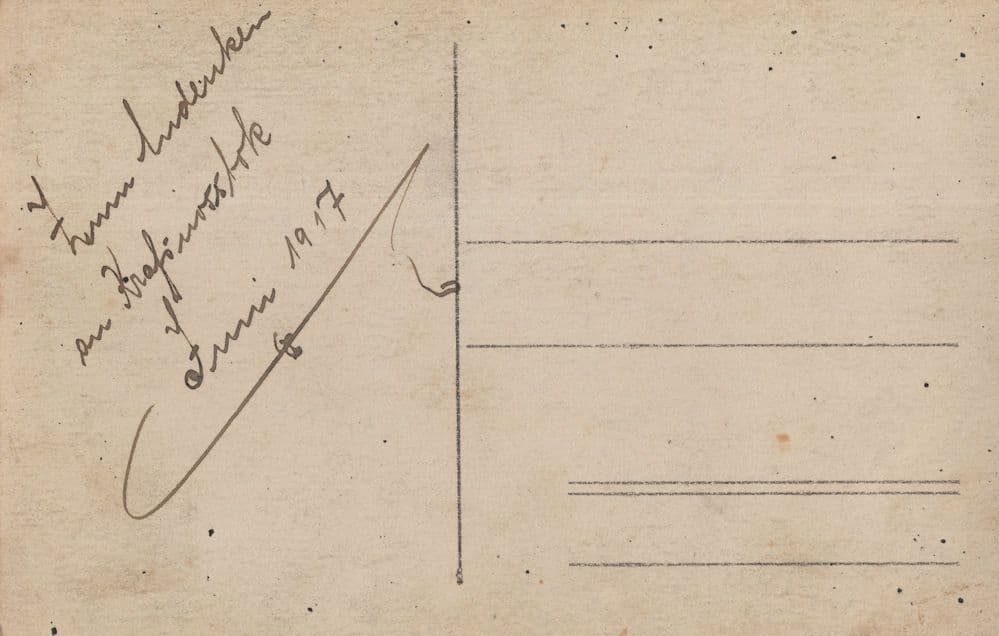 Zum Andenken
an Krasinovstok
Juni 1917